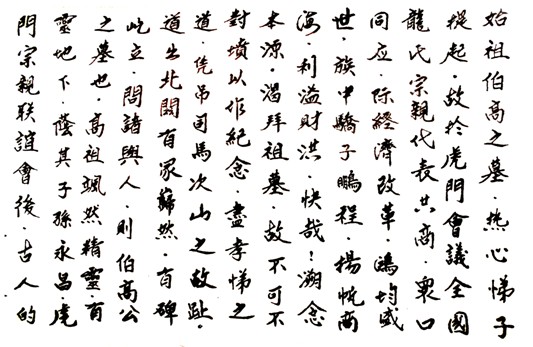 始祖伯高之墓·热心悌子
起·故於虎門會議全國
龍氏宗親代表共商·衆口
同应·际經濟改革·鴻均盛
世·族中驕子鵬程·揚帆商
海·利溢財洪·快哉！溯念
本源·渴拜祖墓·故不可不
對墳以作紀念·盡孝悌之
道·凭吊司馬次山之故趾·
道出北関有冢巋然·有碑
屹立·問諸輿人·則伯高公
之墓也·高祖颯然精靈·有
靈地下·蔭其子孫永昌·虎
門宗親联誼會後·古人的